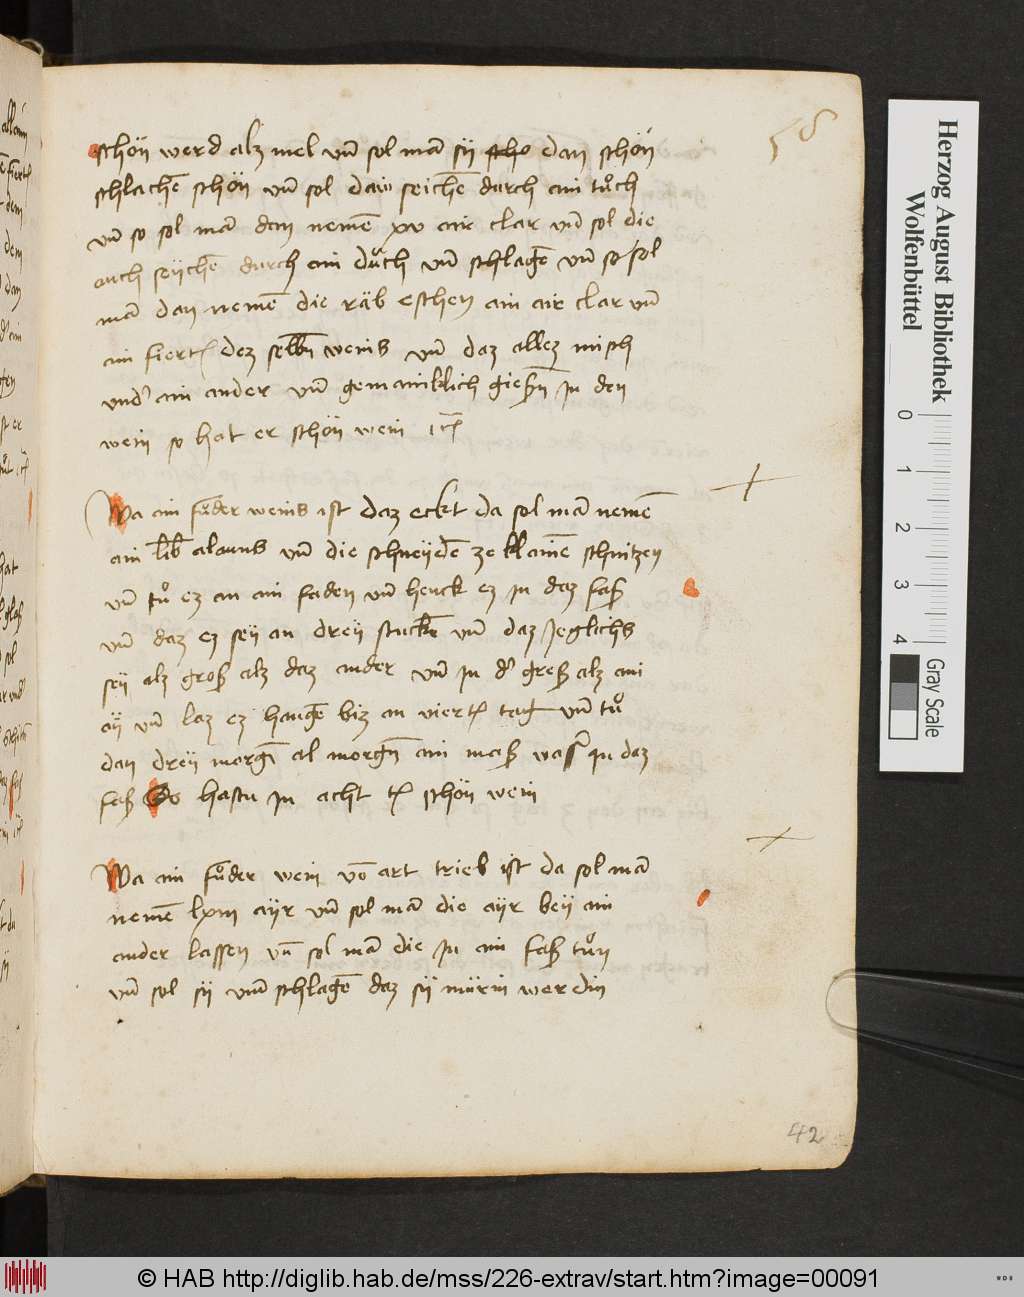 58
schön werd alz mel vnd sol man sÿ scho dan schön
schlachē schön vn̄ sol daw seichē durch ain tůch
vn̄ so sol mā dan nemē xv air clar vn̄ sol die
auch seÿchē durch ain důch vn̄ schlagē vn̄ so sol
mā dan nemē die räb eschen ain air clar vn̄
ain fiertl dez selbn̄ weins vn̄ daz allez misch
vnd' ain ander vn̄ gemainklich gießn̄ jn den
wein so hat er schön wein
Wa ain fůder weins ist daz eckt da sol mā nemē
ain lib alauns vn̄ die schneÿdē ze klainē schnitzen
vn̄ tů ez an ain faden vn̄ henck ez jn daz faß
vn̄ daz ez seÿ an dreÿ stuckn̄ vn̄ daz jeglichs
seÿ alz groß alz daz ander vn̄ jn d' greß alz ain
aÿ vn̄ laz ez hangē biz an viertl tag vn̄ tů
dan dreÿ morgn̄ al morgn̄ ain maß wasr jn daz
faß So hastu jn acht tl schön wein
Wa ain fůder wein vō art trieb ist da sol mā
nemē lxm ayr vn̄ sol mā die ayr beÿ ain
ander lassen vn̄ sol mā die jn ain faß tůn
vn̄ sol sÿ vmē schlagē daz sÿ mürin werdin
42
Herzog August Bibliothek
Wolfenbüttel
0 1 2 3 4
Gray Scale
© HAB http://diglib.hab.de/mss/226-extrav/start.htm?image=00091